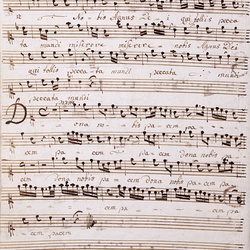 no bis Agnus De i qui tollis pecca
ta mundi miserere miserere nobis Agnus Dei
qui tollis pecca ta mundi peccata mundi
peccata mundi
D ona no bis pa cem pa
cem dona nobis pa cem dona nobis pa
cem dona nobis pa cem dona nobis pa cem pa
cem pa cem pa
cem pacem